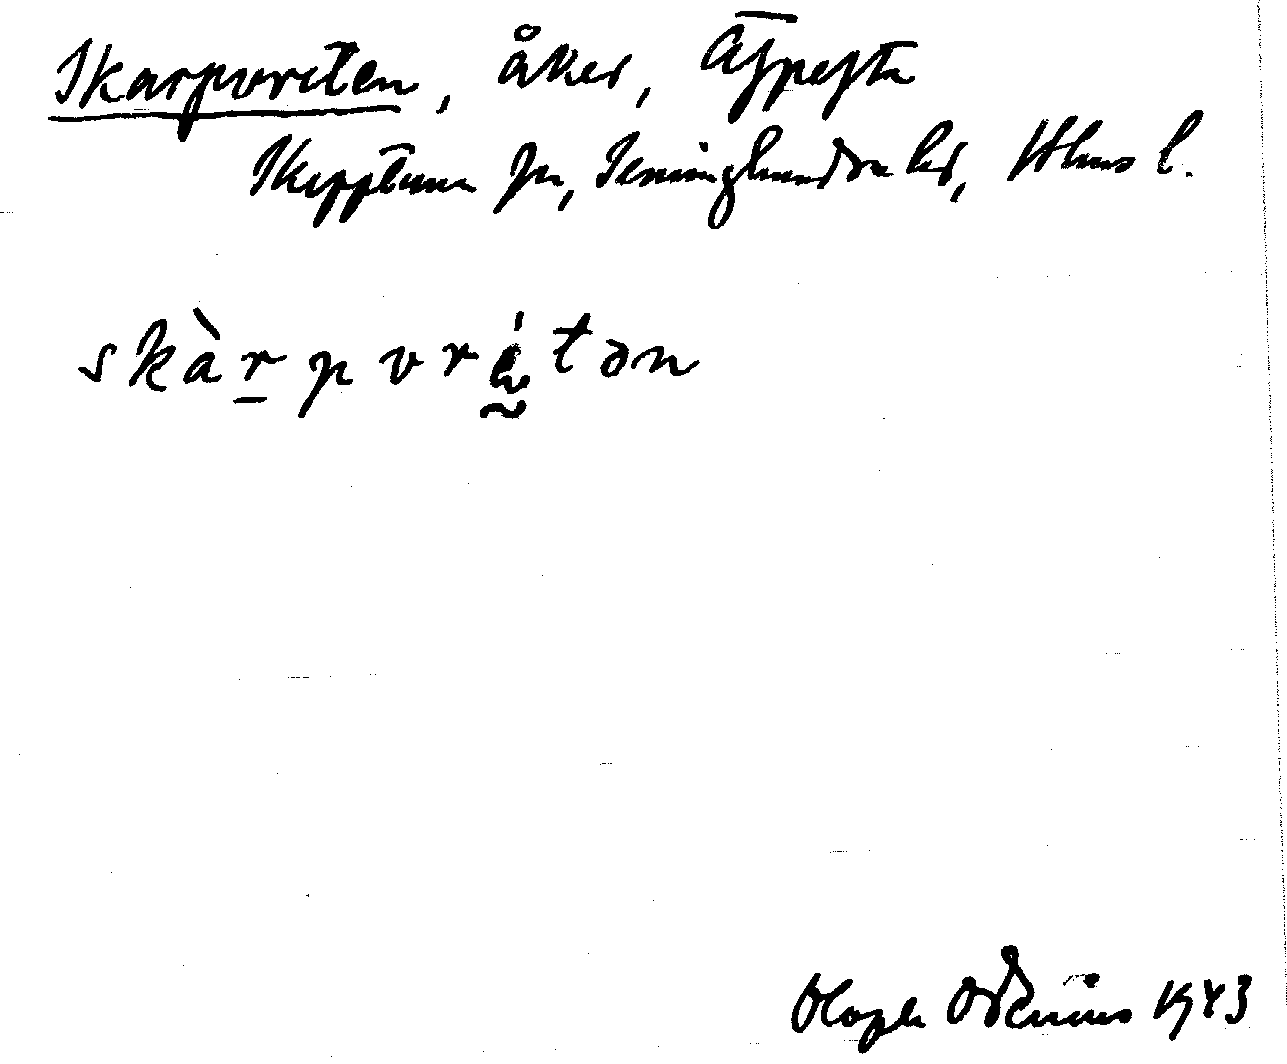 Skarpvreten, åker, Aspesta
Skepptuna sn, Seminghundra hd, Sthms l.
skàrpvré̜tən
Olaph Odenius 1943